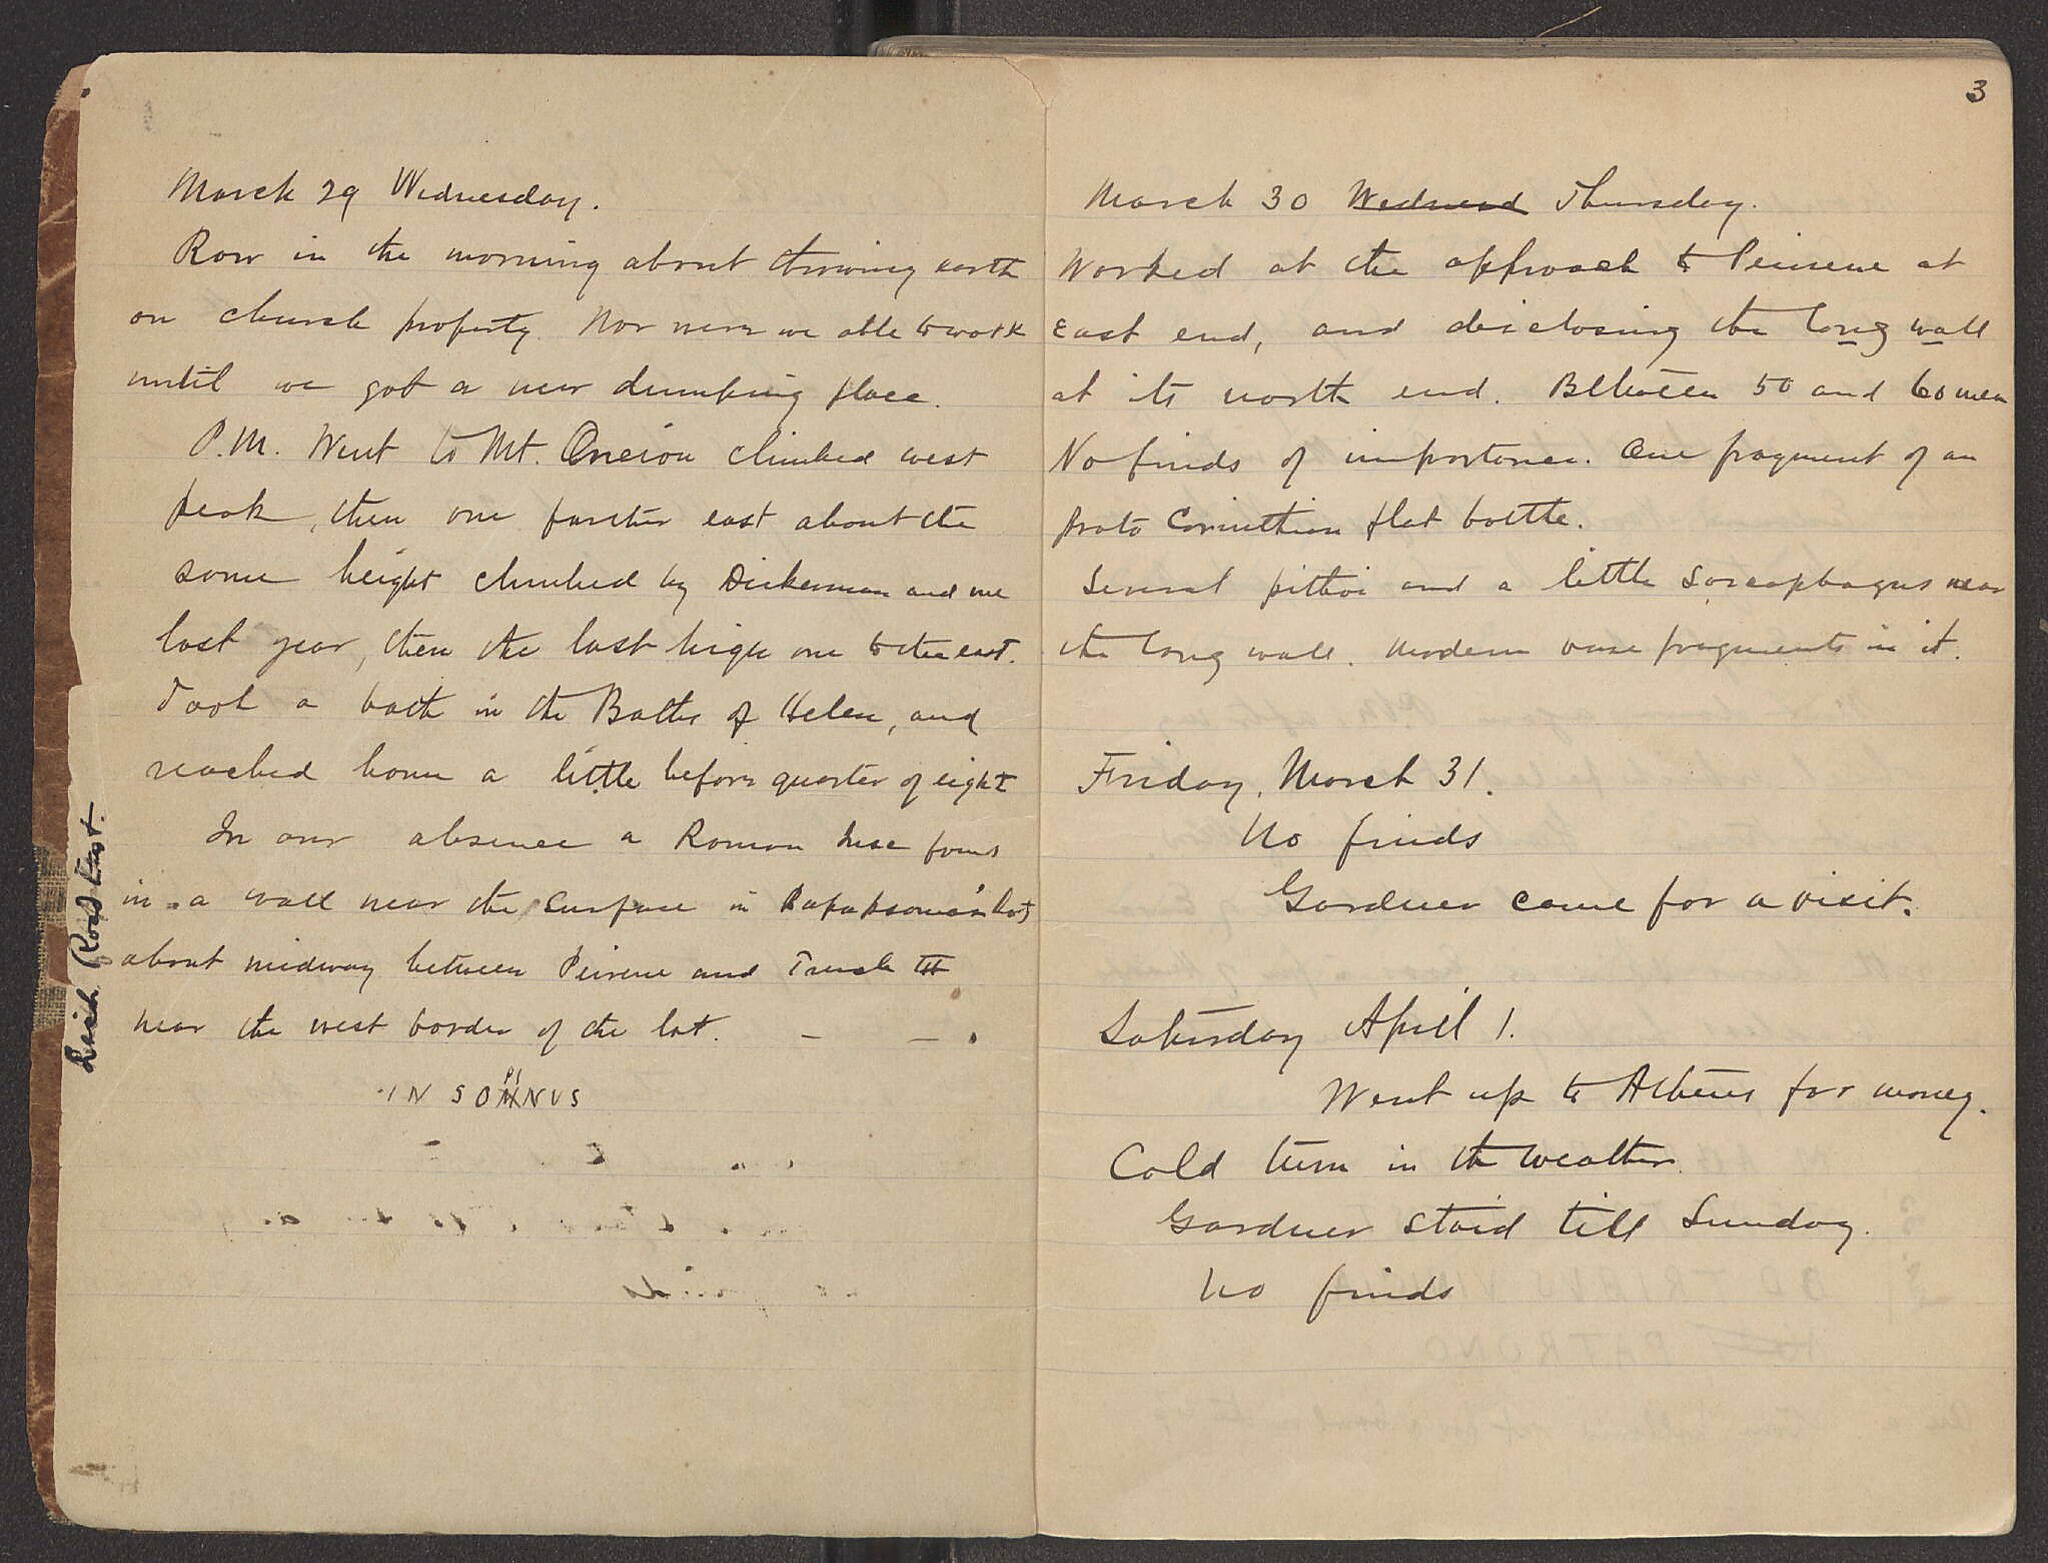 March 29 Wednesday.
Row in the morning about throwing earth
on church property. Nor were we able to work
until we got a new dumping place.
P.M. Went to Mt. Oneion climbed west
peak, then one farther east about the
same height climbed by Dickerman and me
last year, then the last high one to the east.
Took a bath in the Baths of Helen, and
reached home a little before quarter of eight
In our absence a Roman found
in a wall near the surface in lot
about midway between Peirene and Trench III
near the west border of the lot. — — .
IN SOMNUS
Leich Road East.
3
March 30 Wednesd Thursday.
Worked at the approach to Peirene at
East end, and disclosing the long wall
at its north end. Between 50 and 60 men
No finds of importance. One fragment of an
proto Corinthian flat bottle.
Several pithoi and a little Sarcophagus near
the long wall. Modern vase fragments in it.
Friday, March 31.
No finds
Gardner came for a visit.
Saturday April 1.
Went up to Athens for money.
Cold turn in the weather.
Gardner staid till Sunday.
No finds